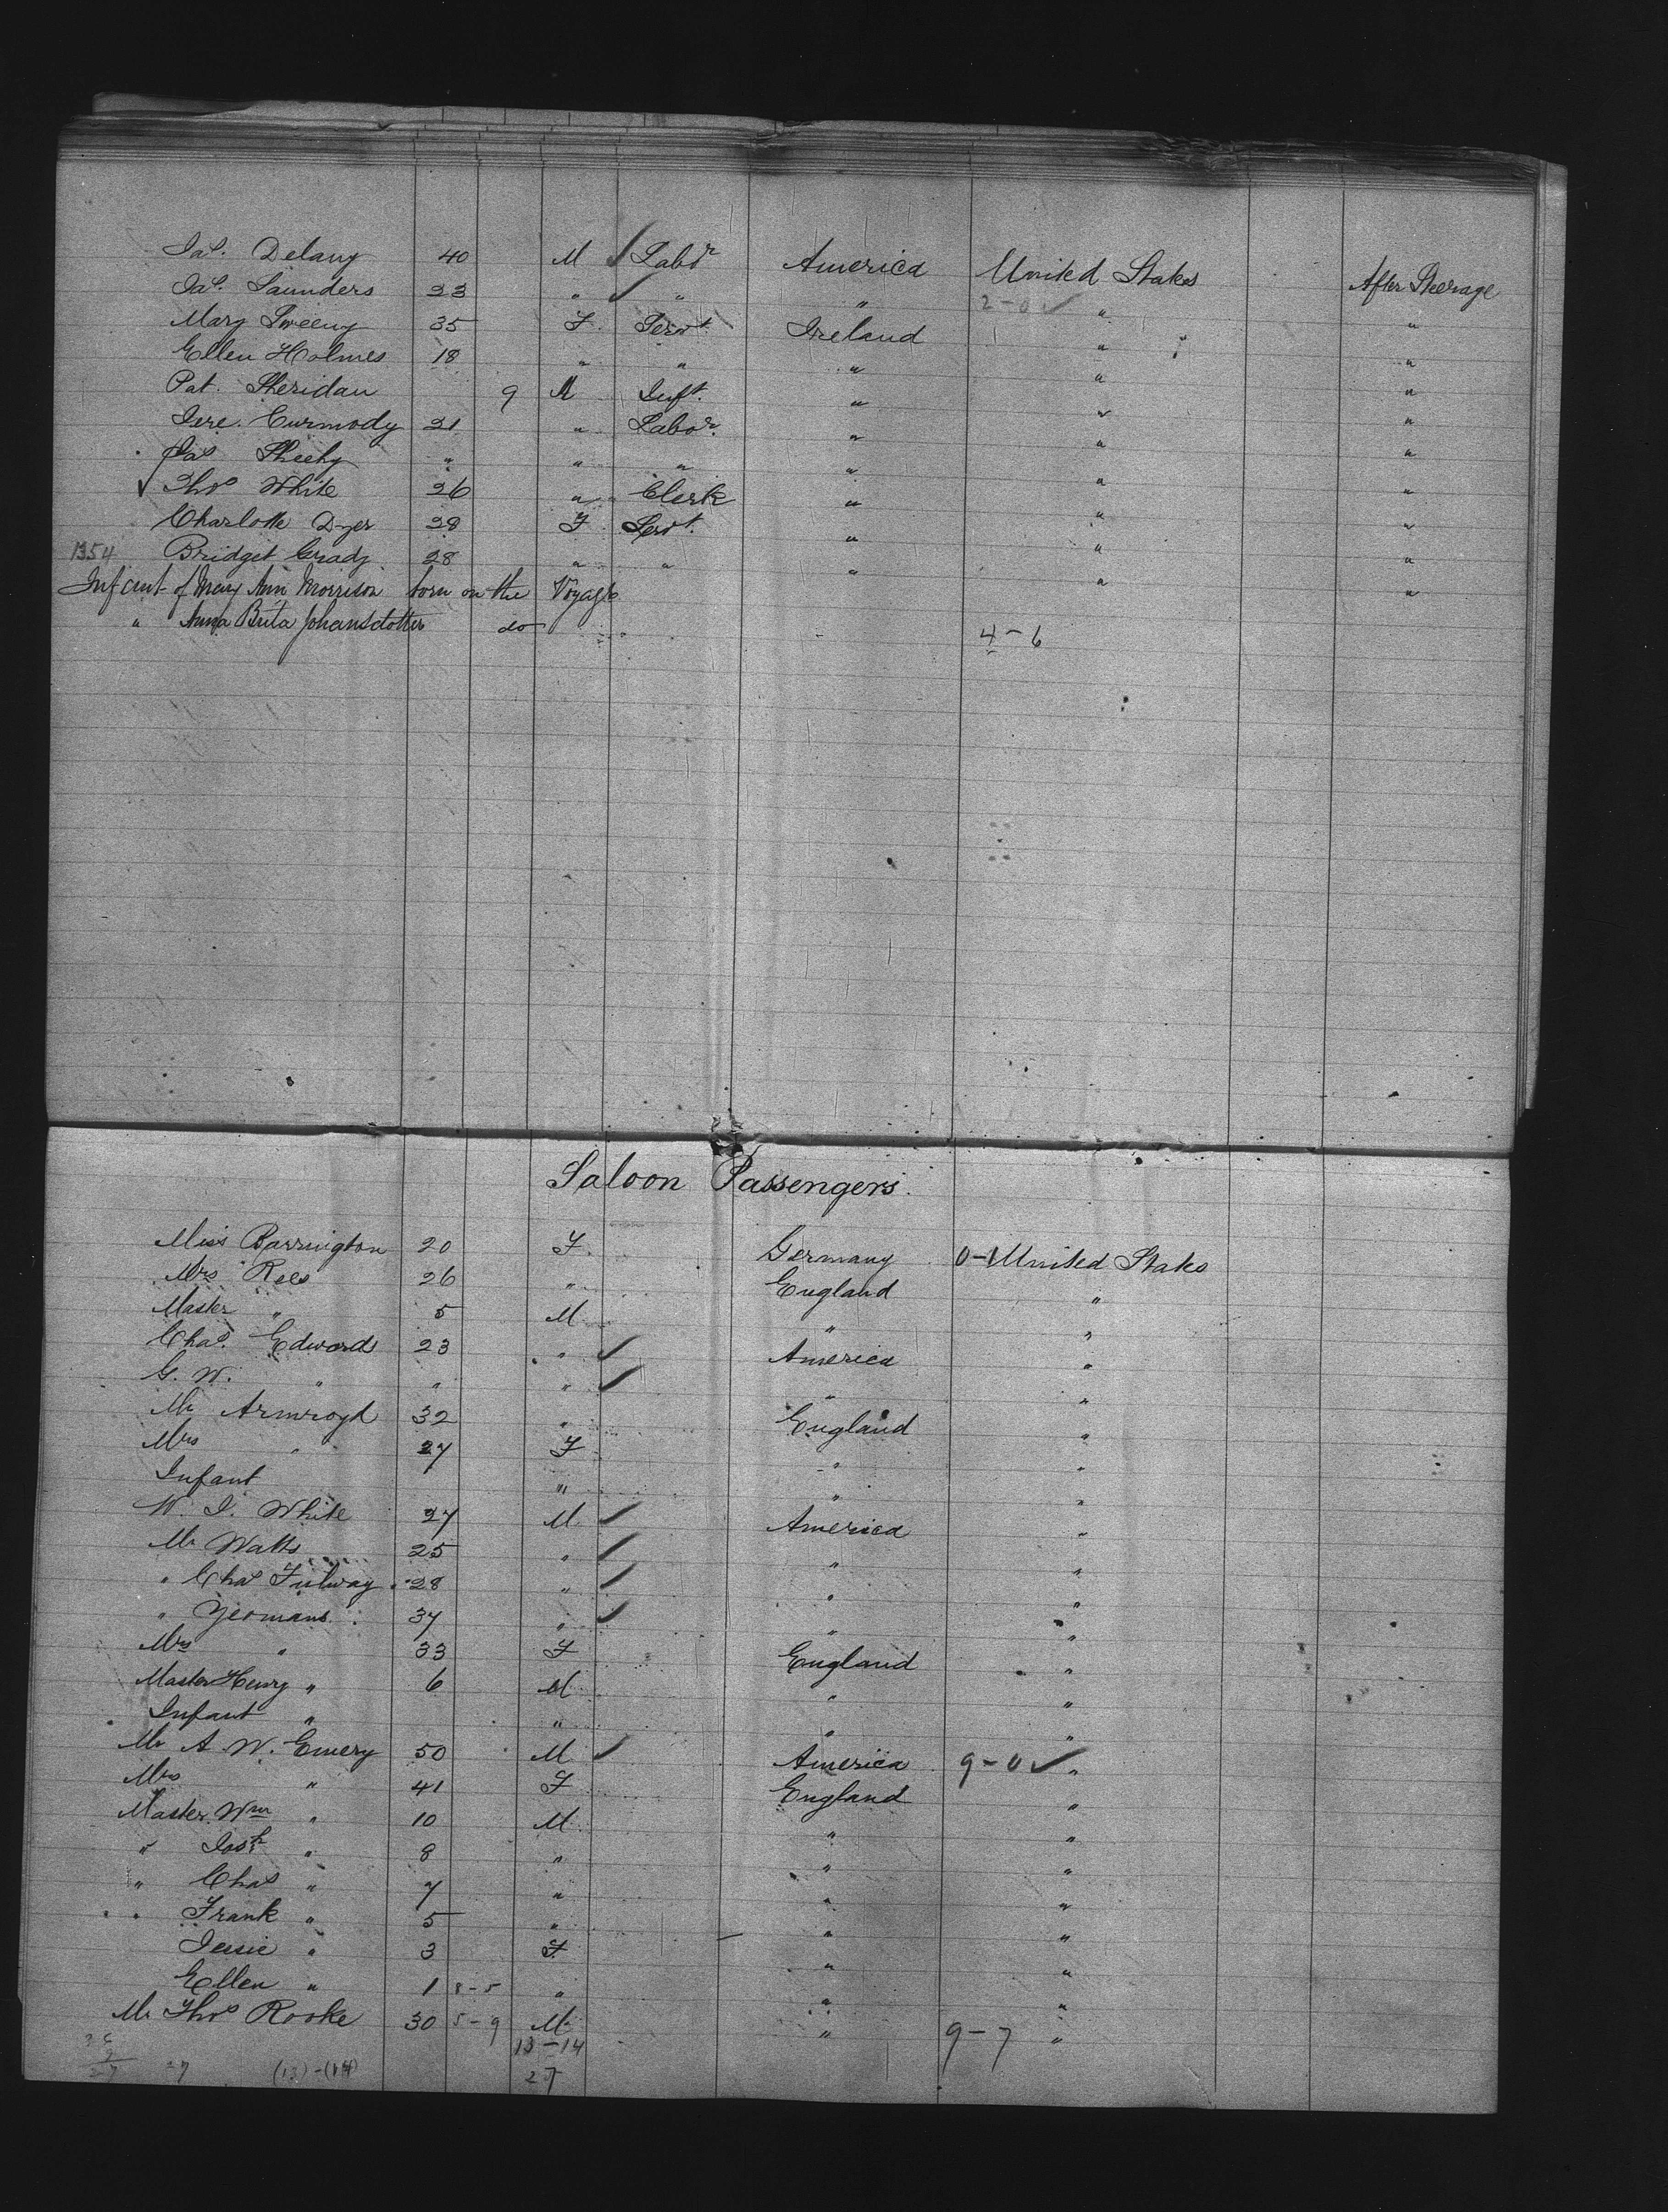 Jas. Delany 40 M Labr America United States After Steerage
Jas. Saunders 23 " " " 2-0 " "
Mary Sweeny 35 F. Servt. Ireland " "
Ellen Holmes 18 " " " " "
Pat. Sheridan 9 M Inft. " " "
Jere. Curmody 21 " Labor. " " "
Jas Sheehy " " " " " "
Thos White 26 " Clerk " " "
Charlotte Dyer 28 F Servt. " " "
1354 Bridget Grady 28 " " " " "
Infant of Mary Ann Morrison born on the Voyage
" Anna Brita Johansdotter do 4-6
Saloon Passengers.
Miss Barrington 20 F. Germany 0-1 United States
Mrs Rees 26 " England "
Master " 5 M " "
Chas. Edwards 23 " America "
G. W. " " " " "
Mr Armroyd 32 " England "
Mrs " 27 F " "
Infant " " "
W. J. White 27 M America "
Mr Watts 25 " " "
" Chas 28 " " "
" Yeomans 37 " " "
Mrs " 33 F England "
Master Henry " 6 M " "
Infant " " " "
Mr A W. Emery 50 M America 9-0 "
Mrs " 41 F England "
Master Wm " 10 M " "
" Josh " 8 " " "
" Chas " 7 " " "
" Frank " 5 " " "
Jessie " 3 F " "
Ellen " 1 8-5 " " "
Mr Thos Rooke 30 5-9 M " 9-7 "
13-14
27 (13)-(14) 27